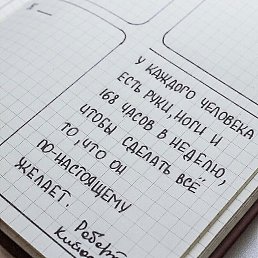 У КАЖДОГО ЧЕЛОВЕКА
ЕСТЬ РУКИ, НОГИ И
168 ЧАСОВ В НЕДЕЛЮ,
ЧТОБЫ СДЕЛАТЬ ВСЁ
ТО, ЧТО ОН
ПО-НАСТОЯЩЕМУ
ЖЕЛАЕТ.
Роберт